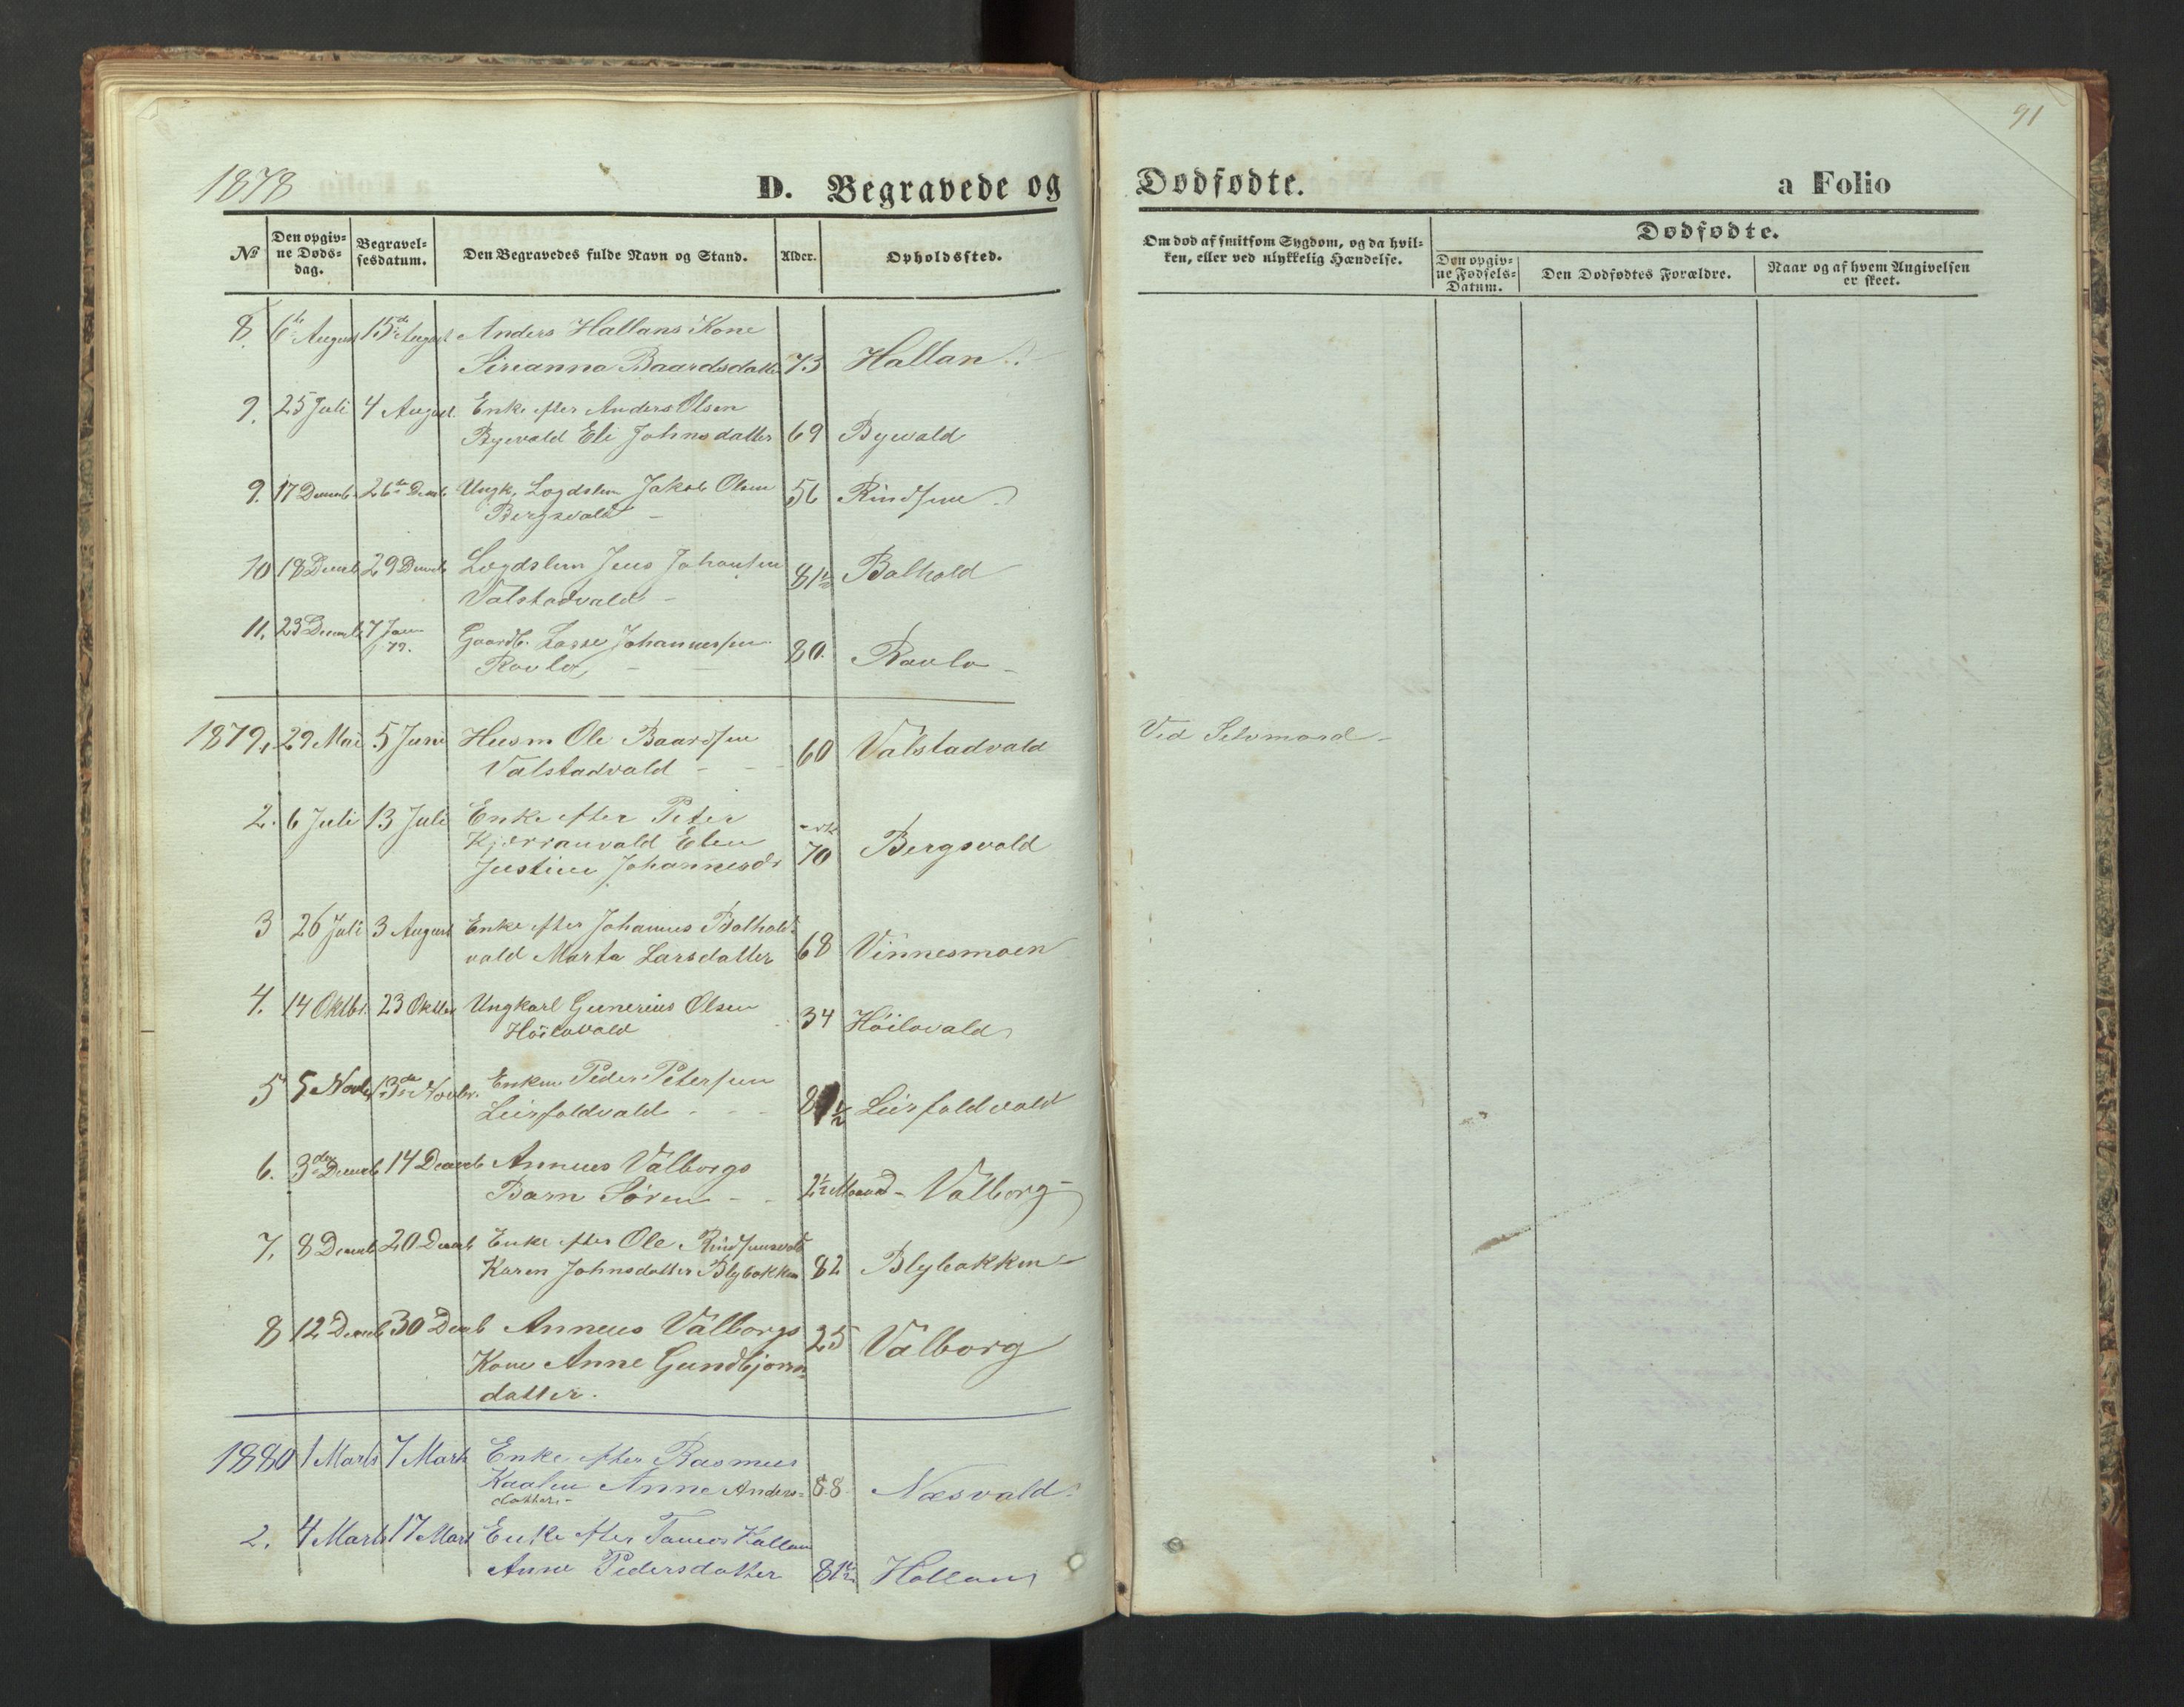 1878
D. Begravede og
Dodfodte.
a Folio
91
№
Den opgivne Dodsdag.
Begravelsesdatum.
Den Begravedes fulde Navn og Stand.
Alder.
Opholdssted.
Om dod af smitsom Sygdom, og da hvilken, eller ved ulykkelig Hændelse.
Dodfodte.
Den opgivne Fodsels-Datum.
Den Dodfodtes Forældre.
Naar og af hvem Angivelsen er skeet.
8. 6te August 15de August Anders Hallans Kone
Sirianna Baardsdatter 73 Hallan
9. 25 Juli 4 August. Enke efter Anders Olsen
Byevald Eli Johnsdatter 69 Byevald
9. 17 Decemb. 26de Decmb Ungk. Lægdslem Jakob Olsen 56 Rindsem
Bergsvald -
10 18 Decmb 29 Decmb Lægdslem Jens Johansen 81½ Balhald
Valstadvald -
11. 23 Decemb. 7 Jan 79. Gaardb. Lasse Johannessen 80. Ravlo -
Ravlo, -
1879, 29 Mai 5 Juni Husm Ole Baardsen 60 Valstadvald Ved Selvmord -
Valstadvald - - -
2. 6 Juli 13 Juli Enke efter Peter
Kjærranvald Elen 70 Bergsvald
Justine Johannesdr
3 26 Juli 3 August Enke efter Johannes Balhald=
vald Marta Larsdatter 68 Vinnesmoen
4. 14 Oktbr. 23 Oktber Ungkarl Gunerius Olsen 34 Höilovald
Höilovald
5 5 Novbr 13de Novbr. Enkem Peder Petersen
Leirfaldvald - - - Leirfaldvald
6. 3die Decmb 14 Decemb Anneus Valborgs
Barn Sören - - 2½ Maaned - Valborg -
7. 8 Decmb 20 Decmb Enke efter Ole Rindsemvald
Karen Johnsdatter Blybakken 82 Blybakken
8 12 Decmb 30 Decmb Anneus Valborgs 25 Valborg
Kone Anne Gundbjørns=
datter.
1880 1 Marts 7 Marts Enke efter Rasmus
Kaalen Anne Anders= 88 Næsvald.
datter. -
2. 4 Marts 17 Marts Enke efter Hallan
Anne Pedersdatter 81½ Hallan